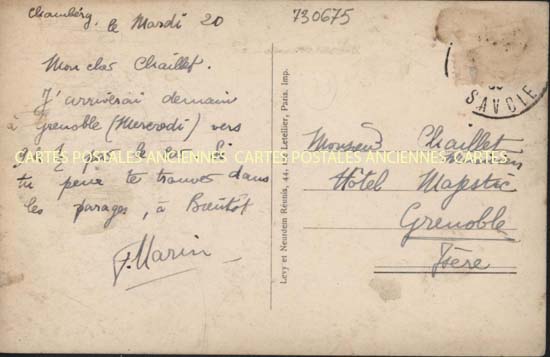 Chambéry, le Mardi 20
730675
Mon cher Chaillet.
J'arriverai demain
à Grenoble (Mercredi) vers
par le car. Si
tu peux te trouver dans
les parages, à Bientôt
J. Marin
Levy et Neurdein Réunis, 44, Letellier, Paris. Imp.
SAVOIE
Monsieur Chaillet
Hôtel Majestic
Grenoble
Isère
CARTES POSTALES ANCIENNES CARTES POSTALES ANCIENNES CARTES POSTALES ANCIENNES